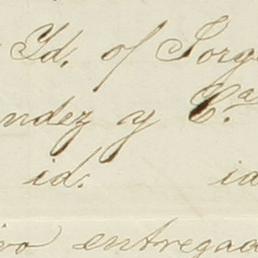 Id. of Jorg
ndez y C.a
id. id
ivo entregad